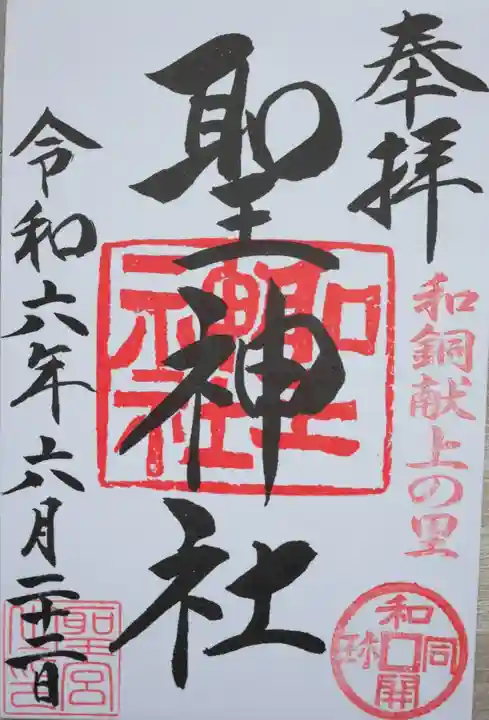 奉拝
和銅献上の里
和同開珎
聖神社
聖神社
令和六年六月二十二日